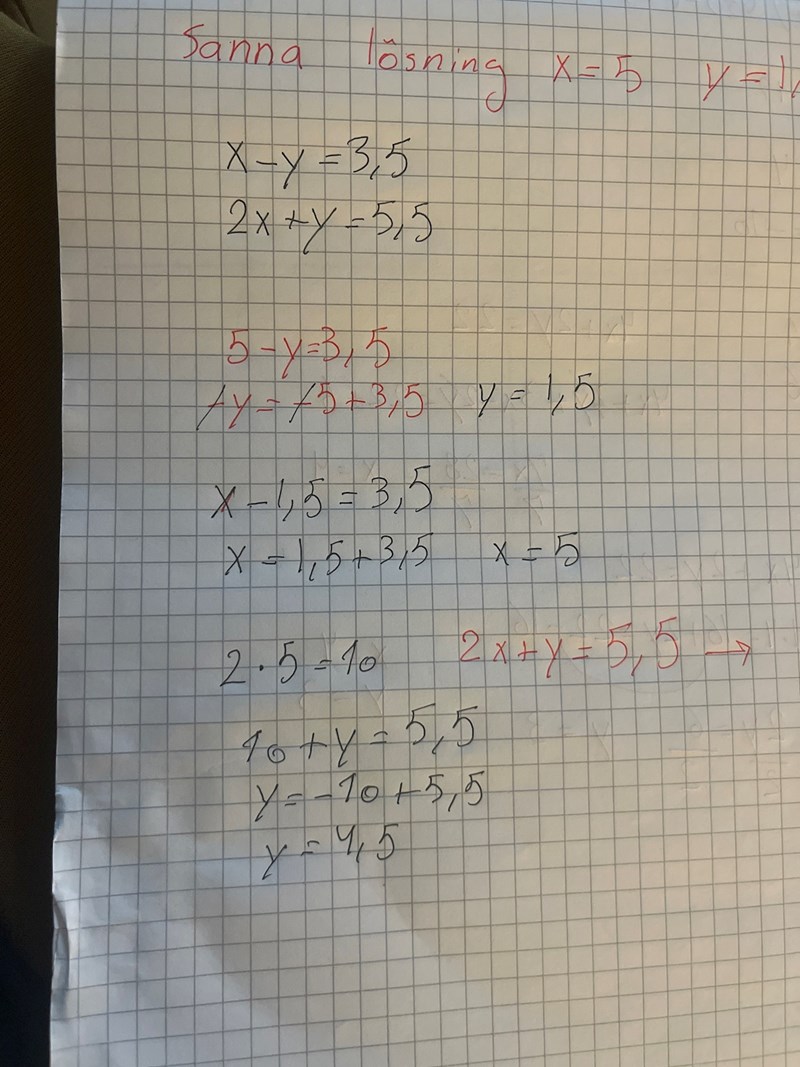 Sanna lösning x = 5 y = 1,
x - y = 3,5
2x + y = 5,5
5 - y = 3,5
-y = -5 + 3,5 y = 1,5
x - 1,5 = 3,5
x = 1,5 + 3,5 x = 5
2 · 5 = 10 2x + y = 5,5 →
10 + y = 5,5
y = -10 + 5,5
y = 4,5